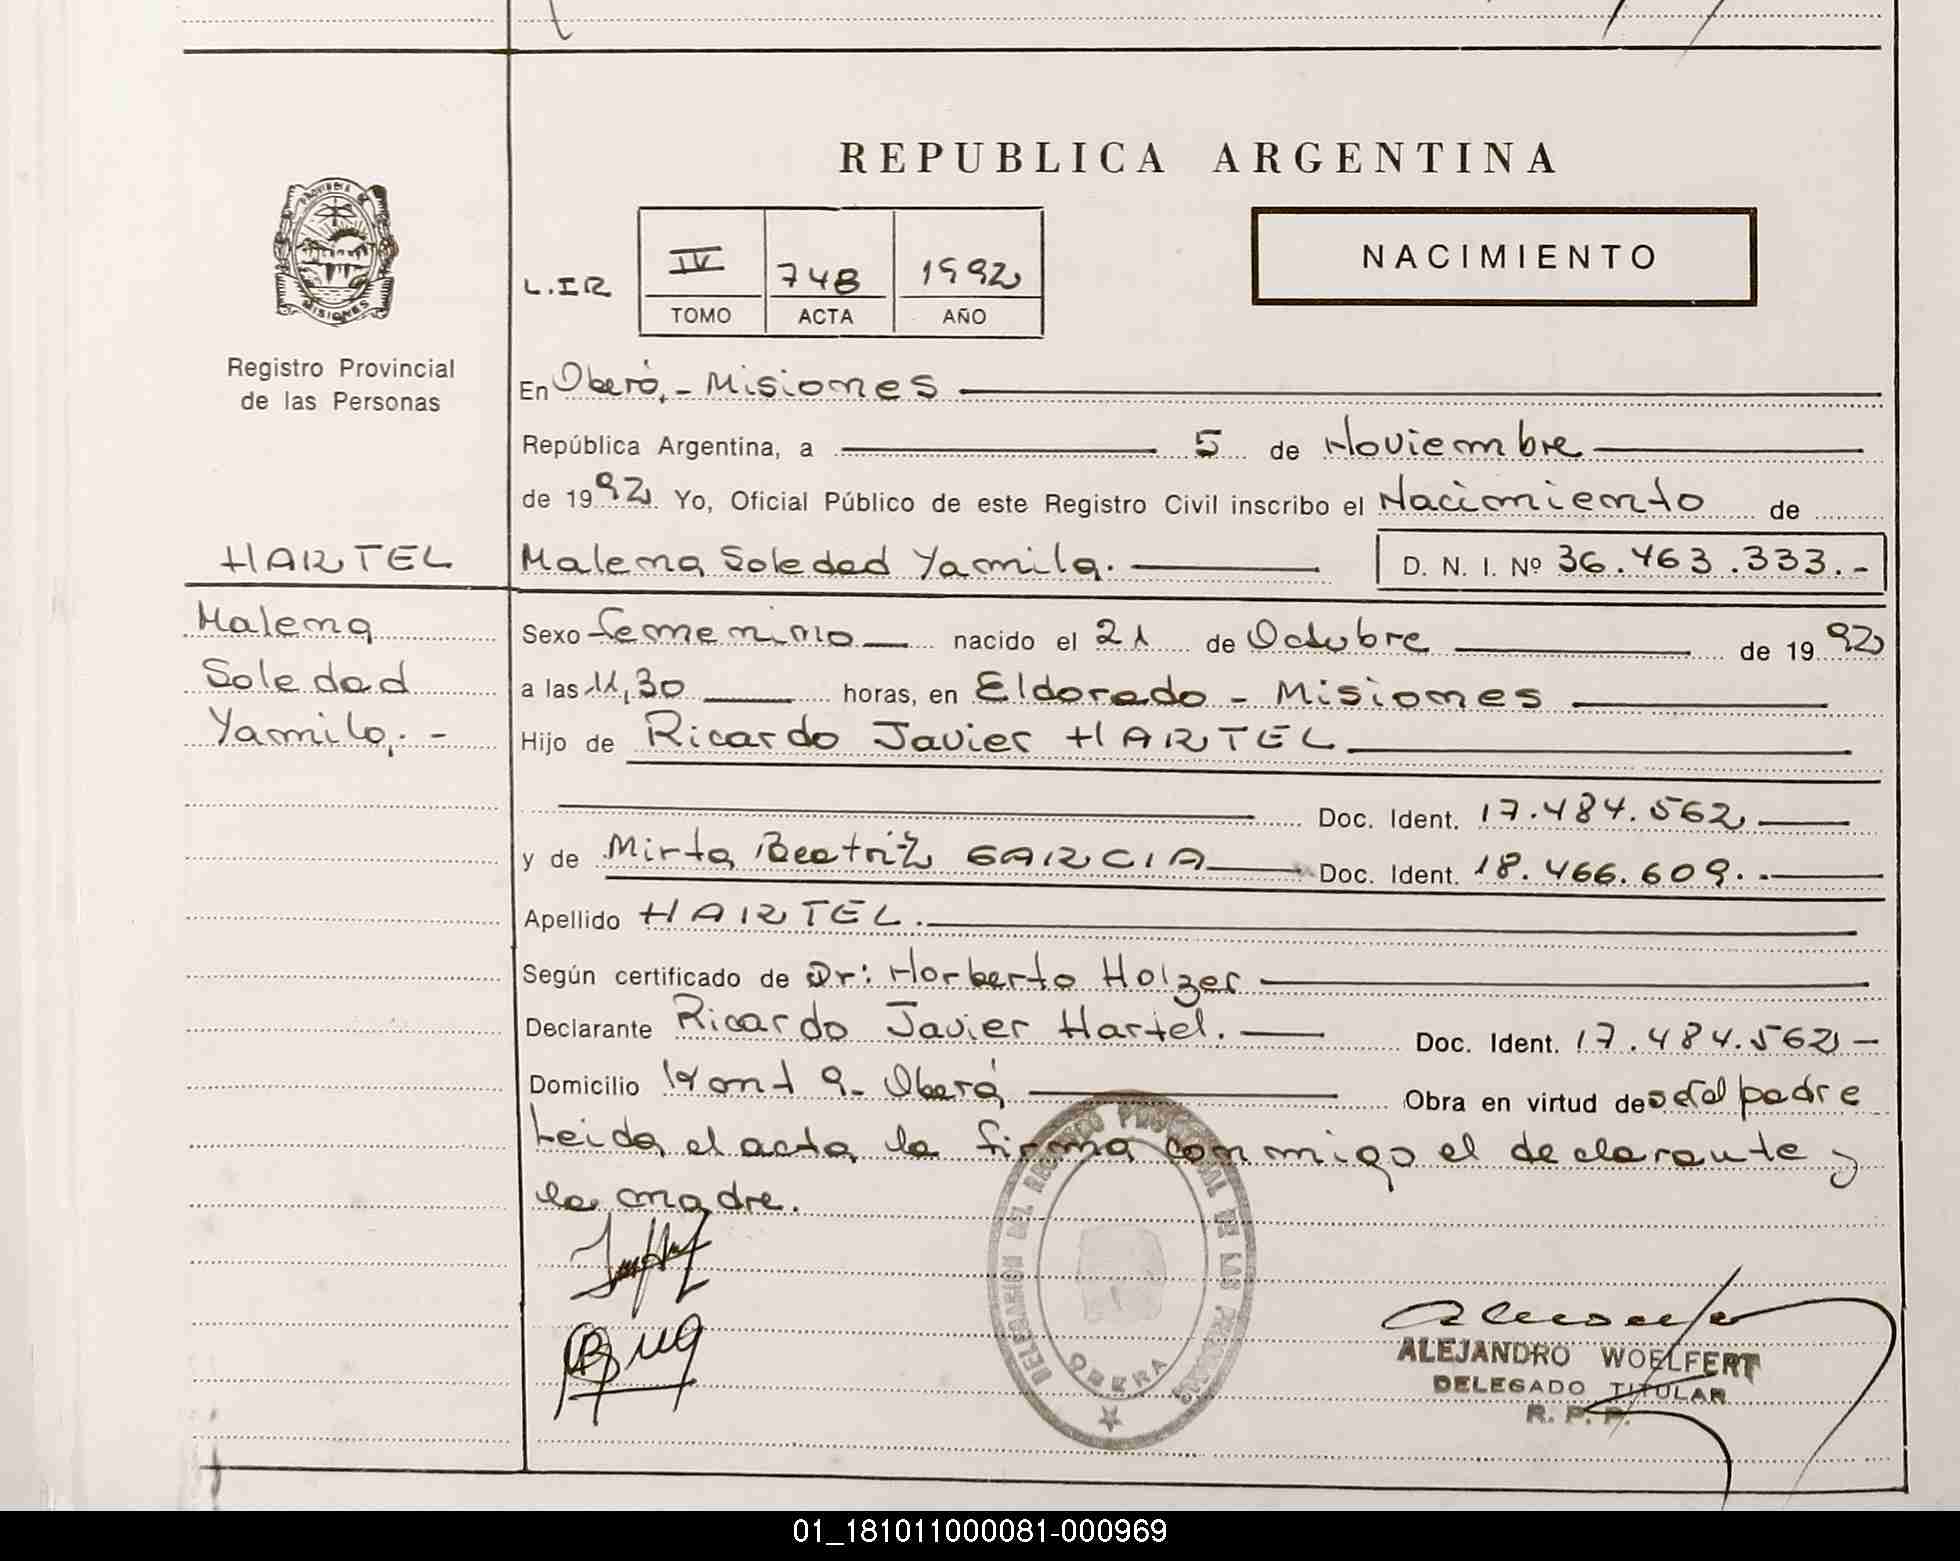 REPUBLICA ARGENTINA
PROVINCIA DE
MISIONES
Registro Provincial
de las Personas
L.IR
IV 748 1992
TOMO ACTA AÑO
NACIMIENTO
En Oberá.- Misiones
República Argentina, a 5 de Noviembre
de 1992 Yo, Oficial Público de este Registro Civil inscribo el Nacimiento de
HARTEL
Malena Soledad Yamila. D. N. I. Nº 36.463.333.-
Malena
Soledad
Yamila.-
Sexo femenino nacido el 21 de Octubre de 1992
a las 11,30 horas, en Eldorado - Misiones
Hijo de Ricardo Javier HARTEL
Doc. Ident. 17.484.562
y de Mirta Beatriz GARCIA Doc. Ident. 18.466.609.-
Apellido HARTEL.
Según certificado de Dr: Norberto Holzer
Declarante Ricardo Javier Hartel. Doc. Ident. 17.484.562-
Domicilio 9- Oberá Obra en virtud de padre
Leida el acta la firma conmigo el declarante y
la madre.
DELEGACION DEL REGISTRO PROVINCIAL DE LAS PERSONAS
OBERA
ALEJANDRO WOELFERT
DELEGADO TITULAR
R. P. P.
01_181011000081-000969